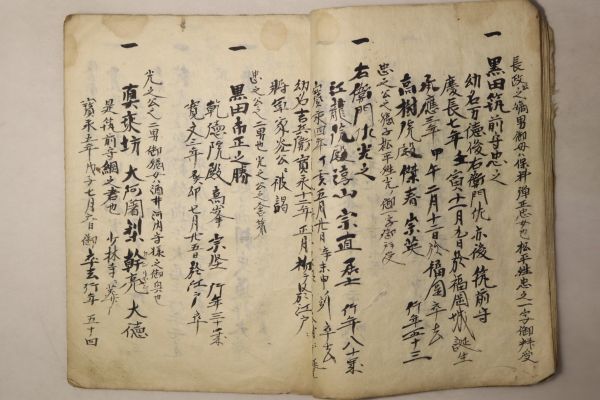 長政公之嫡男御母保科弾正忠女也松平姓忠之一字御拝受
一 黒田筑前守忠之
幼名万徳後右衛門佐亦後筑前守
慶長七年壬寅十一月九日於福岡城誕生
承應三年甲午二月十二日於福岡卒去
高樹院殿傑春宗英 行年五十三
忠之公之嫡子松平姓光之御字御拝受
一 右衛門佐光之
江龍院殿淳山宗直居士 行年八十歳
寳永四年丁亥五月廿日辛未申ノ刻卒去
幼名吉兵衛寛永十二年正月 於江戸
将軍家 公被謁
忠之公之二男也光之公之舎弟
一 黒田甫正之勝
乾徳院殿高峯宗堅 行年三十歳
寛文三年癸卯七月廿五日於江戸卒
光之公之三男御嫡女酒井河内守様之御奥也
一 真乗坊大阿闍梨幹亮大徳
是筑前守綱之君也 少林寺葬
寳永五年戊子七月六日御卒去行年五十四